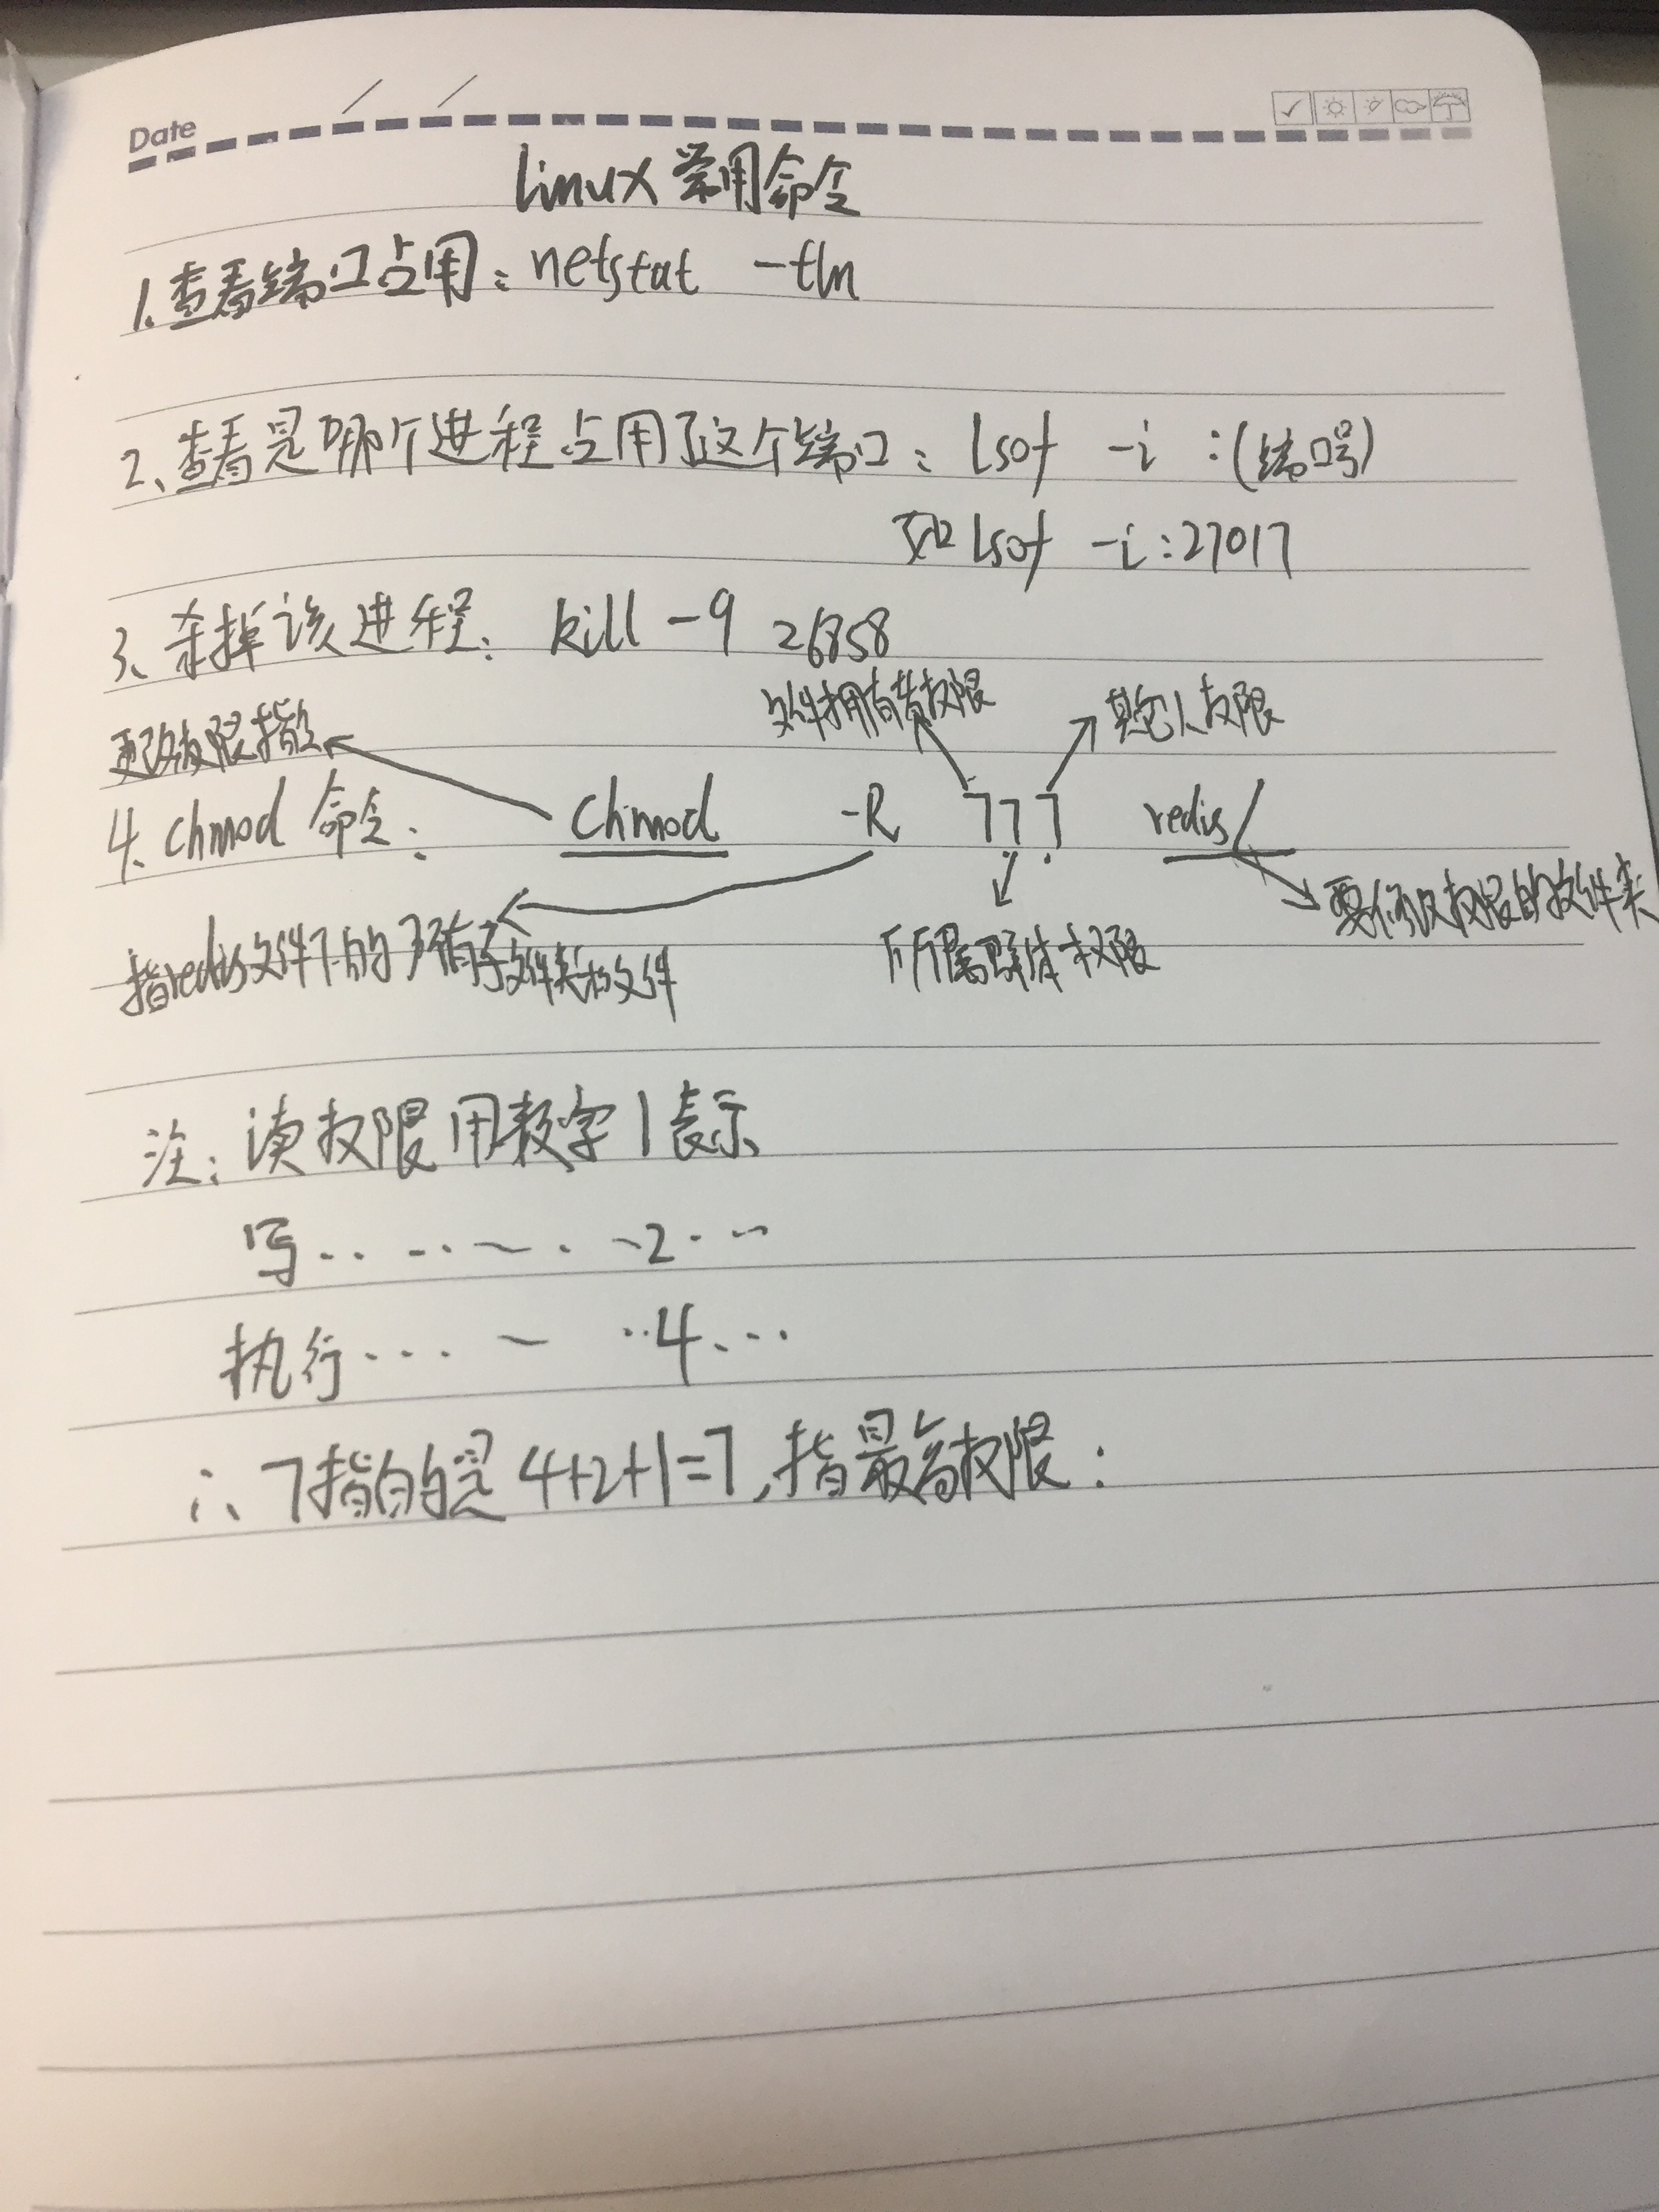 Date
linux常用命令
1.查看端口占用: netstat -tln
2、查看是哪个进程占用了这个端口: lsof -i :(端口号)
如 lsof -i:27017
3、杀掉该进程: kill -9 26858
更改权限指令
文件拥有者权限
其它人权限
4. chmod 命令: chmod -R 777 redis/
指redis文件下的所有子文件夹和文件
所属群体权限
要修改权限的文件夹
注: 读权限用数字1表示
写.. ... 2 ...
执行... ..4...
∴ 7指的是 4+2+1=7,指最高权限: